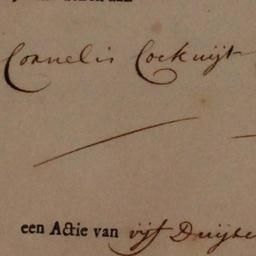 Cornelis Cockuijt
een Actie van vijf Duijse